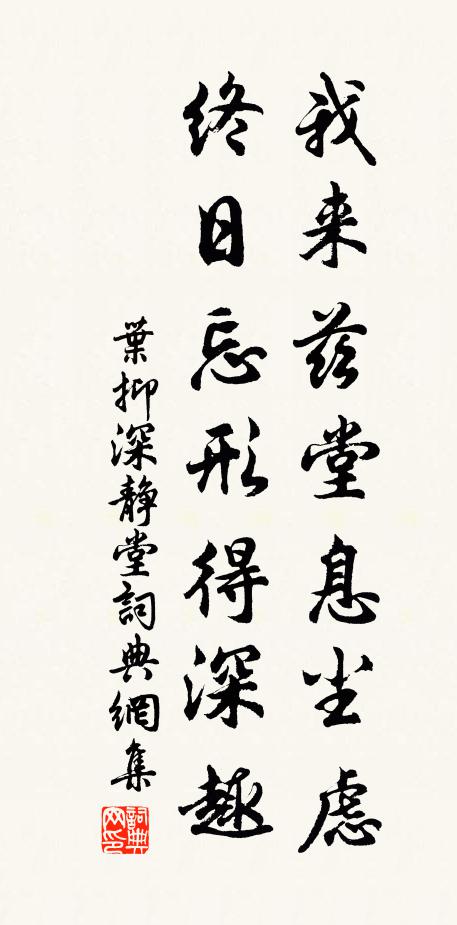 我来兹堂息尘虑
终日忘形得深趣
葉抑深静堂詞典網集
詞典网印